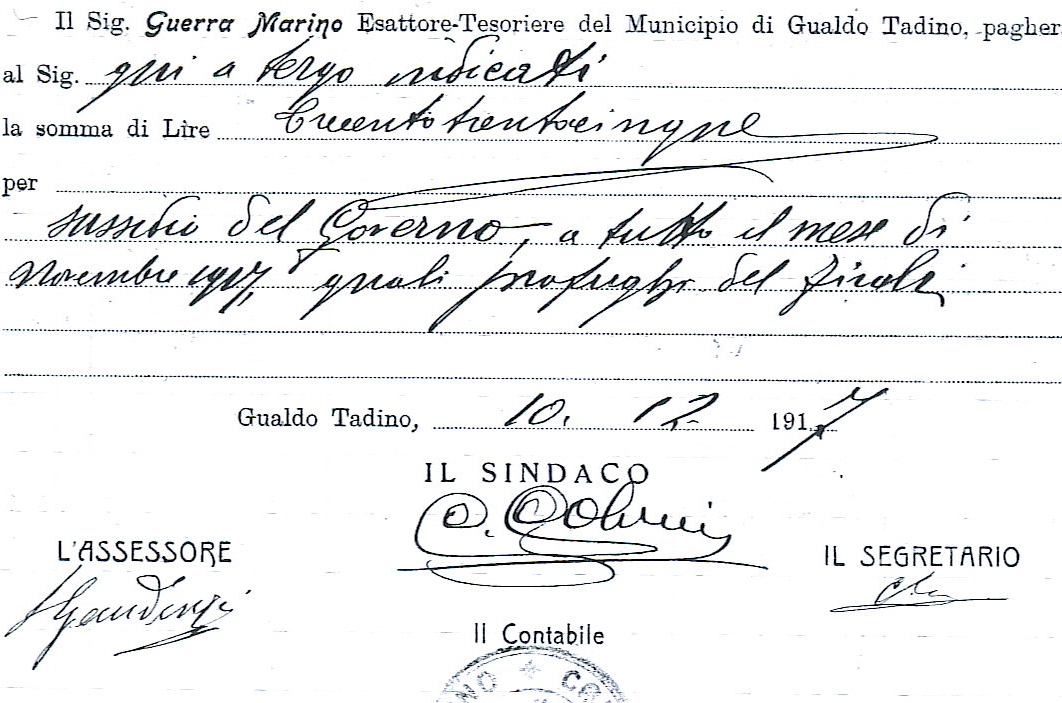 Il Sig. Guerra Marino Esattore-Tesoriere del Municipio di Gualdo Tadino, pagher
al Sig. qui a tergo indicati
la somma di Lire Trecentotrentacinque
per
sussidio del Governo, a tutto il mese di
Novembre 1917, quali profughi del Friuli
Gualdo Tadino, 10. 12. 1917
IL SINDACO
L'ASSESSORE
IL SEGRETARIO
Il Contabile
NO * CO